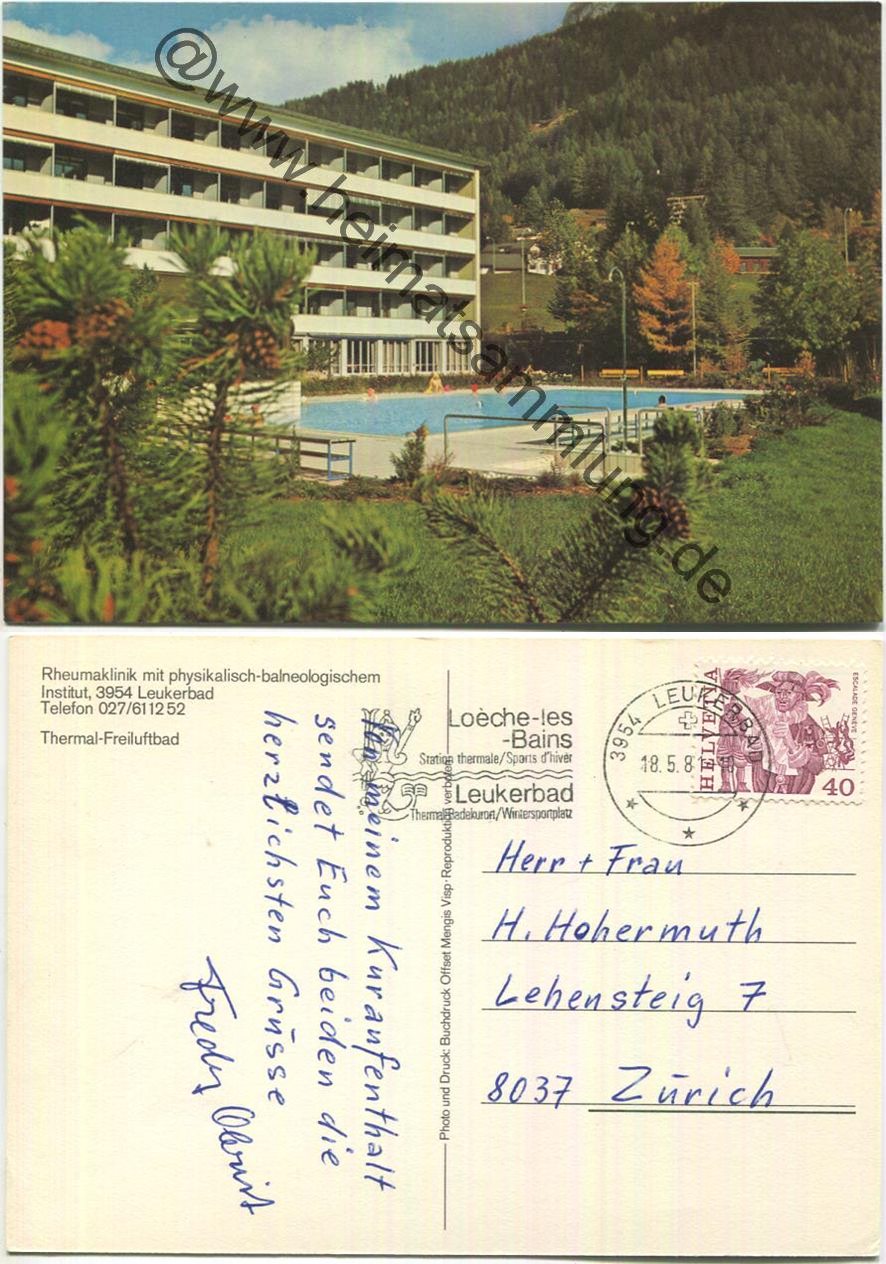 @www.heimatsammlung.de
Rheumaklinik mit physikalisch-balneologischem
Institut, 3954 Leukerbad
Telefon 027/6112 52
Thermal-Freiluftbad
Von meinem Kuraufenthalt
sendet Euch beiden die
herzlichsten Grüsse
Fredy
Photo und Druck: Buchdruck Offset Mengis Visp · Reproduktion verboten
Loèche-les
-Bains
Station thermale/Sports d'hiver
Leukerbad
Thermalbadekurort/Wintersportplatz
3954 LEUKERBAD
18.5.8
HELVETIA
ESCALADE GENÈVE
40
Herr + Frau
H. Hohermuth
Lehensteig 7
8037 Zürich